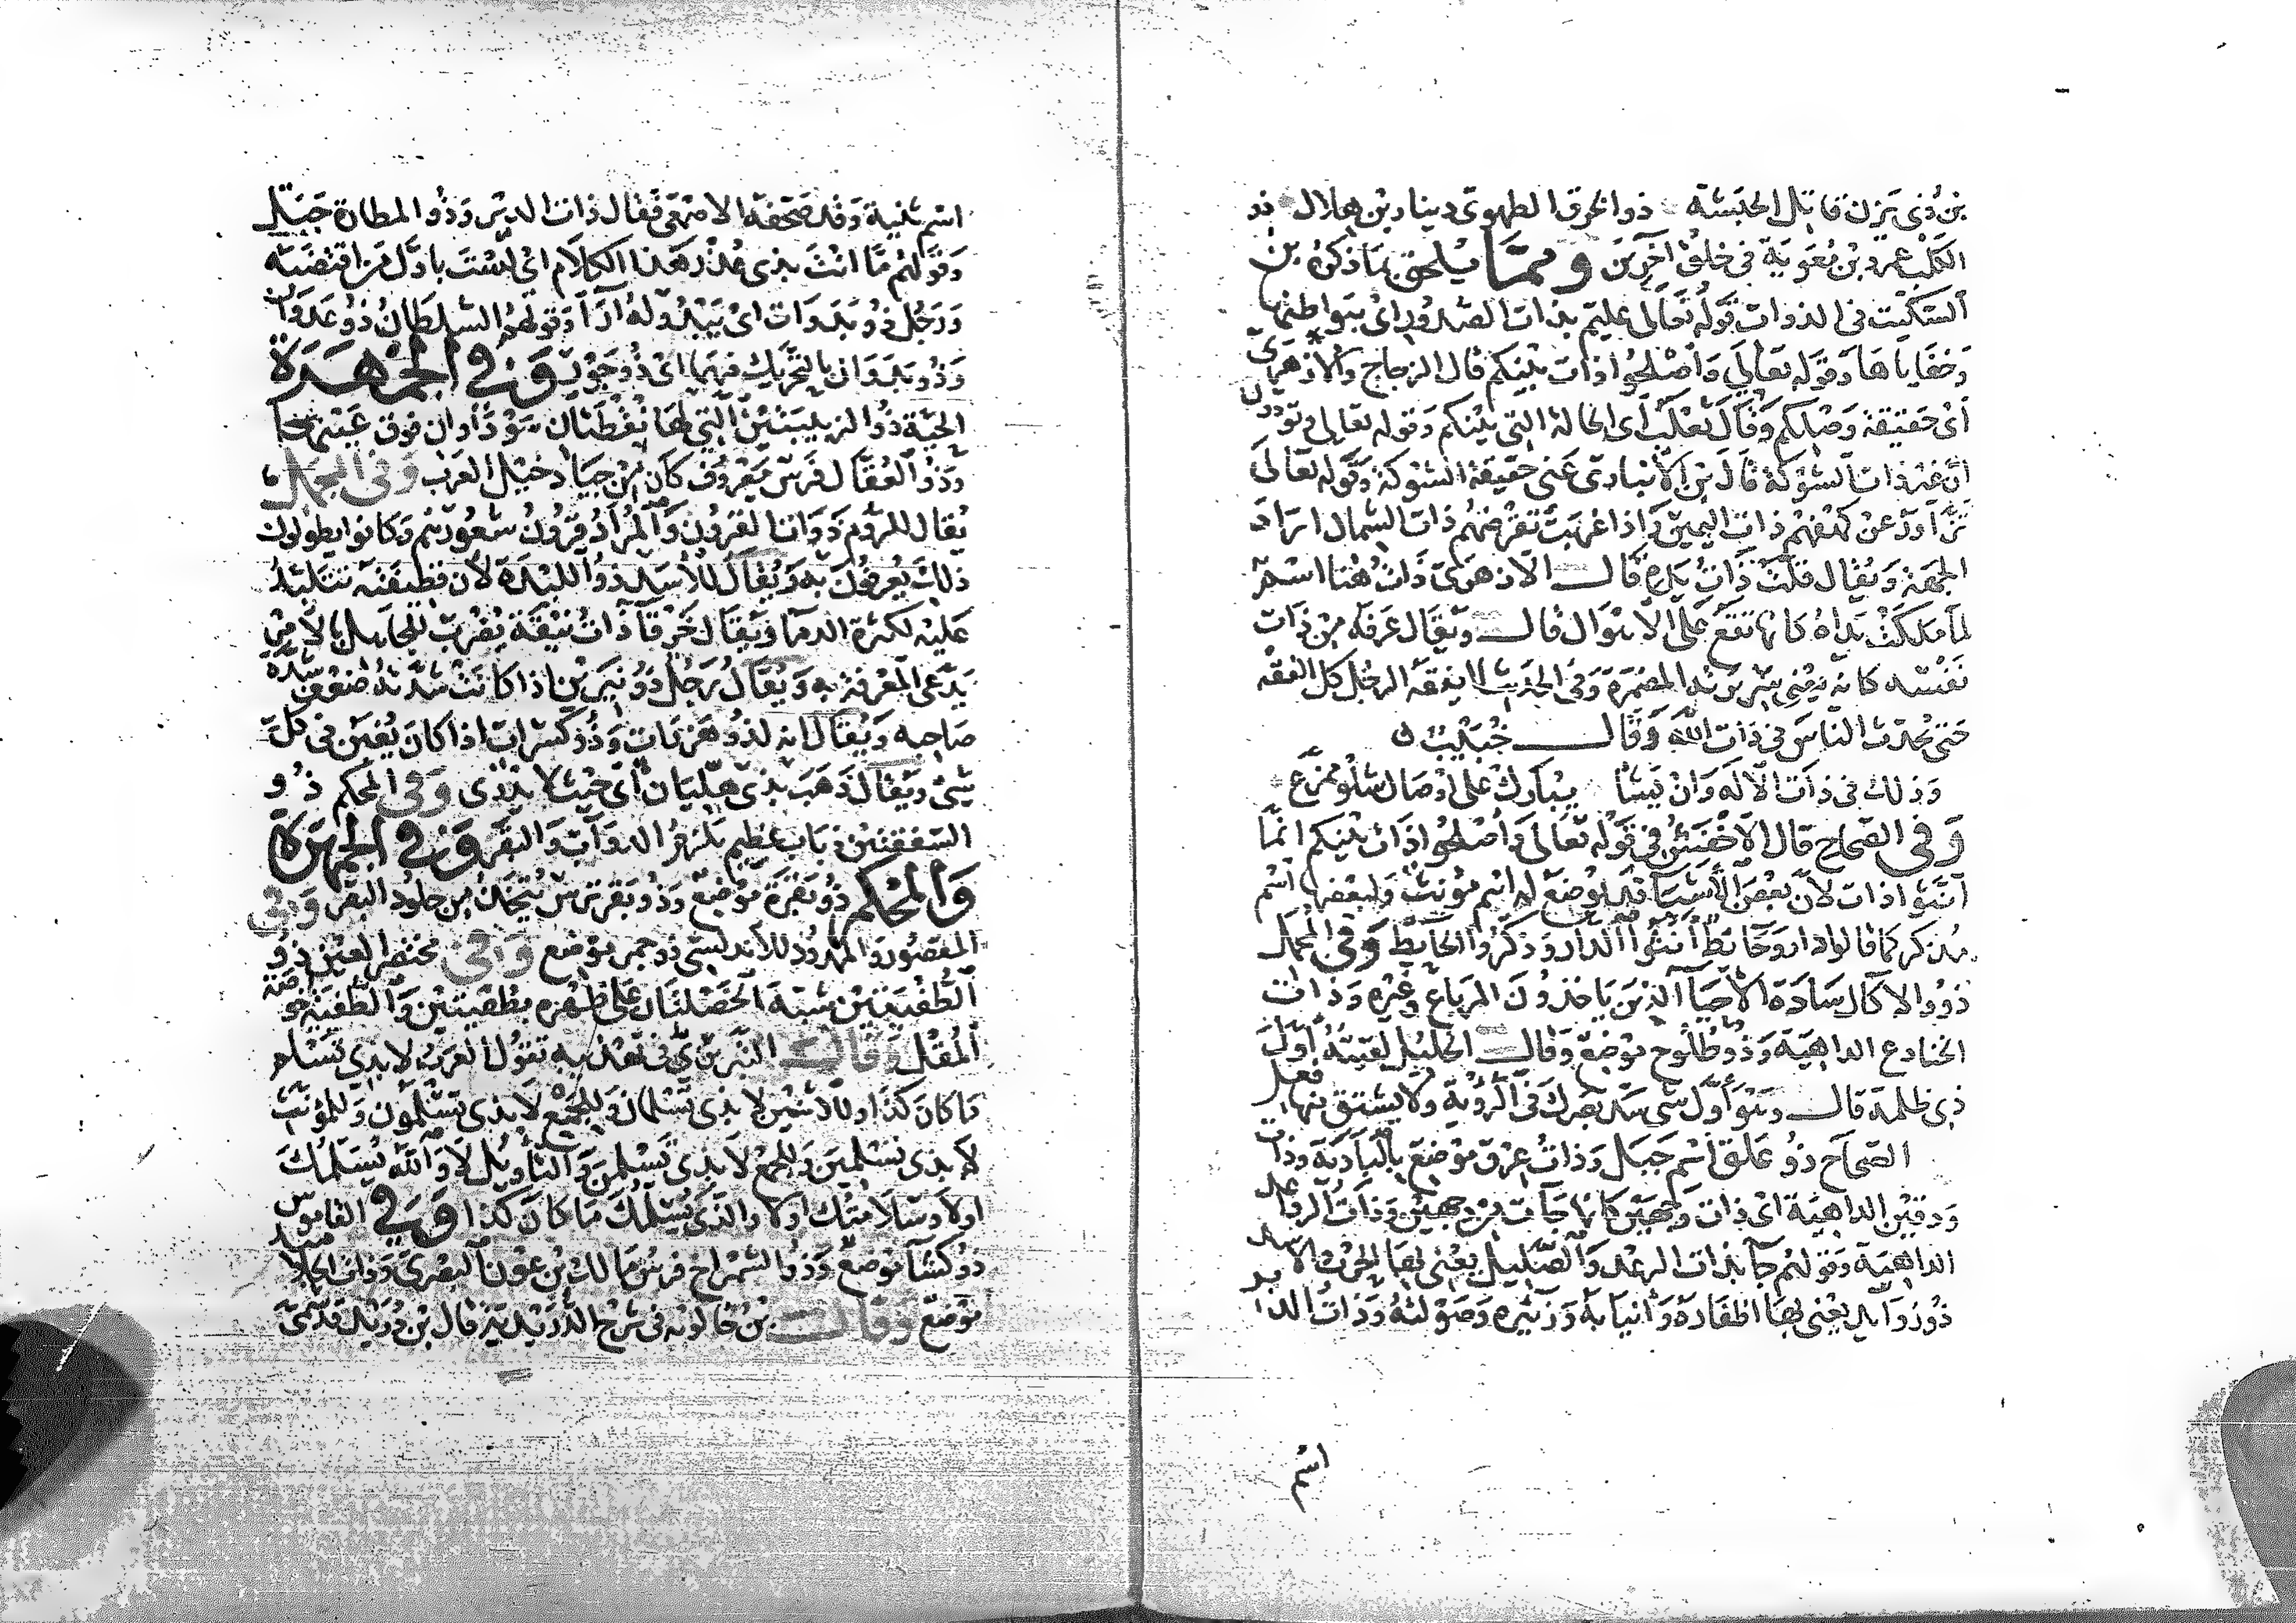 بن ذي يزن قاتل الحبشة ذو الخرق الطهوي دينار بن هلال ذو
الكلب عمرو بن معوية في خلق آخرين ومما يلحق بما ذكره بن
السكيت في الذوات قوله تعالى عليم بذات الصدور اي ببواطنها
وخفاياها وقوله تعالى واصلحوا ذات بينكم قال الزجاج والازهري
اي حقيقة وصلكم وقال ثعلب اي الحالة التي بينكم وقوله تعالى وتودون
ان غير ذات الشوكة قال بن الانباري عنى حقيقة الشوكة وقوله تعالى
تزاور عن كهفهم ذات اليمين واذا غربت تقرضهم ذات الشمال اراد
الجهة ويقال قلت ذات يده قال الازهري ذات هنا اسم
لما ملكت يداه كانها تقع على الاموال قال ويقال عرفه من ذات
نفسه كانه يعني سريرته المضمرة وفي الحديث لا يفقه الرجل كل الفقه
حتى يحدث الناس في ذات الله وقال خبيب
وذلك في ذات الاله وان يشا يبارك على اوصال شلو ممزع
وفي الصحاح قال الاخفش في قوله تعالى واصلحوا ذات بينكم انما
انثوا ذات لان بعض الاشيا قد يوضع له اسم مؤنث ولبعضها اسم
مذكر كما قالوا دار وحائط انثوا الدار وذكروا الحائط وفي المجمل
ذوو الاكال سادة الاحيا الذين ياخذون المرباع وغيره وذات
الخنادع الداهية وذو طلوح موضع وقال الخليل لقيته اول
ذي ظلمة قال وهو اول شي سد بصرك في الرؤية ولا يشتق منها فعل
الصحاح ذو علق اسم جبل وذات عرق موضع بالبادية وذات
ودقين الداهية اي ذات وجهين كانها جات من وجهين وذات الرواعد
الداهية وقولهم جا بذات الرعد والصليل يعني بها الحرب الاسد
ذو زوايد يعني بها اظفاره وانيابه وزئيره وصولته وذات الدير
اسم
اسم ثنية وقد صحفه الاصمعي فقال ذات الدير وذو المطارة جبل
وقولهم ما انت بذي عذر هذا الكلام اي لست باول من اقتضبه
ورجل ذو بدوات اي يبدو له ارا وقولهم السلطان ذو عدوان
وذو بدوان بالتحريك فيهما اي ذو جور وفي الجمهرة
الحية ذو الزبيبتين التي لها نقطتان سوداوان فوق عينيها
وذو العقال فرس معروف كان من جياد خيل العرب وفي المجمل
يقال للروم ذوات القرون والمراد قرون شعورهم وكانوا يطولون
ذلك يعرفون به ويقال للاسد ذو اللبدة لان قطيفته تتلبد
عليه لكثرة الدما ويقال خرقا ذات نيقة يضرب للجاهل بالامر
يدعي المعرفة به ويقال رجل ذو نيرين اذا كانت شدته ضعف شدة
صاحبه ويقال انه لذو هزمات وذو كسرات اذا كان يغبن في كل
شي ويقال ذهب بذي هليان اي حيث لا يدرى وفي المحكم ذو
الشقفتين ذباب عظيم يلزم الدواب والبقر وفي الجمهرة
والمحكم ذو بقرة موضع وذو بقر ترس يتخذ من جلود البقر وفي
المقصور والممدود للاندلسي ذو حمر موضع وفي مختصر العين ذو
الطفيتين شبه الخصلتان على ظهره بطفيتين والطفية خوصة
المقل وقال التبريزي في تهذيبه تقول العرب لا بذي تسلم
ما كان كذا وللاثنين لا بذي تسلمان وللجمع لا بذي تسلمون وللمؤنث
لا بذي تسلمين وللجمع لا بذي تسلمن والتاويل لا والله يسلمك
اولا وسلامتك اولا والذي يسلمك ما كان كذا وفي القاموس
ذو كشا موضع وذو الشمراخ فرس مالك بن عون البصري وذات الجلاميد
موضع وقال بن خالويه في شرح الدريدية قال بن دريد قدمني